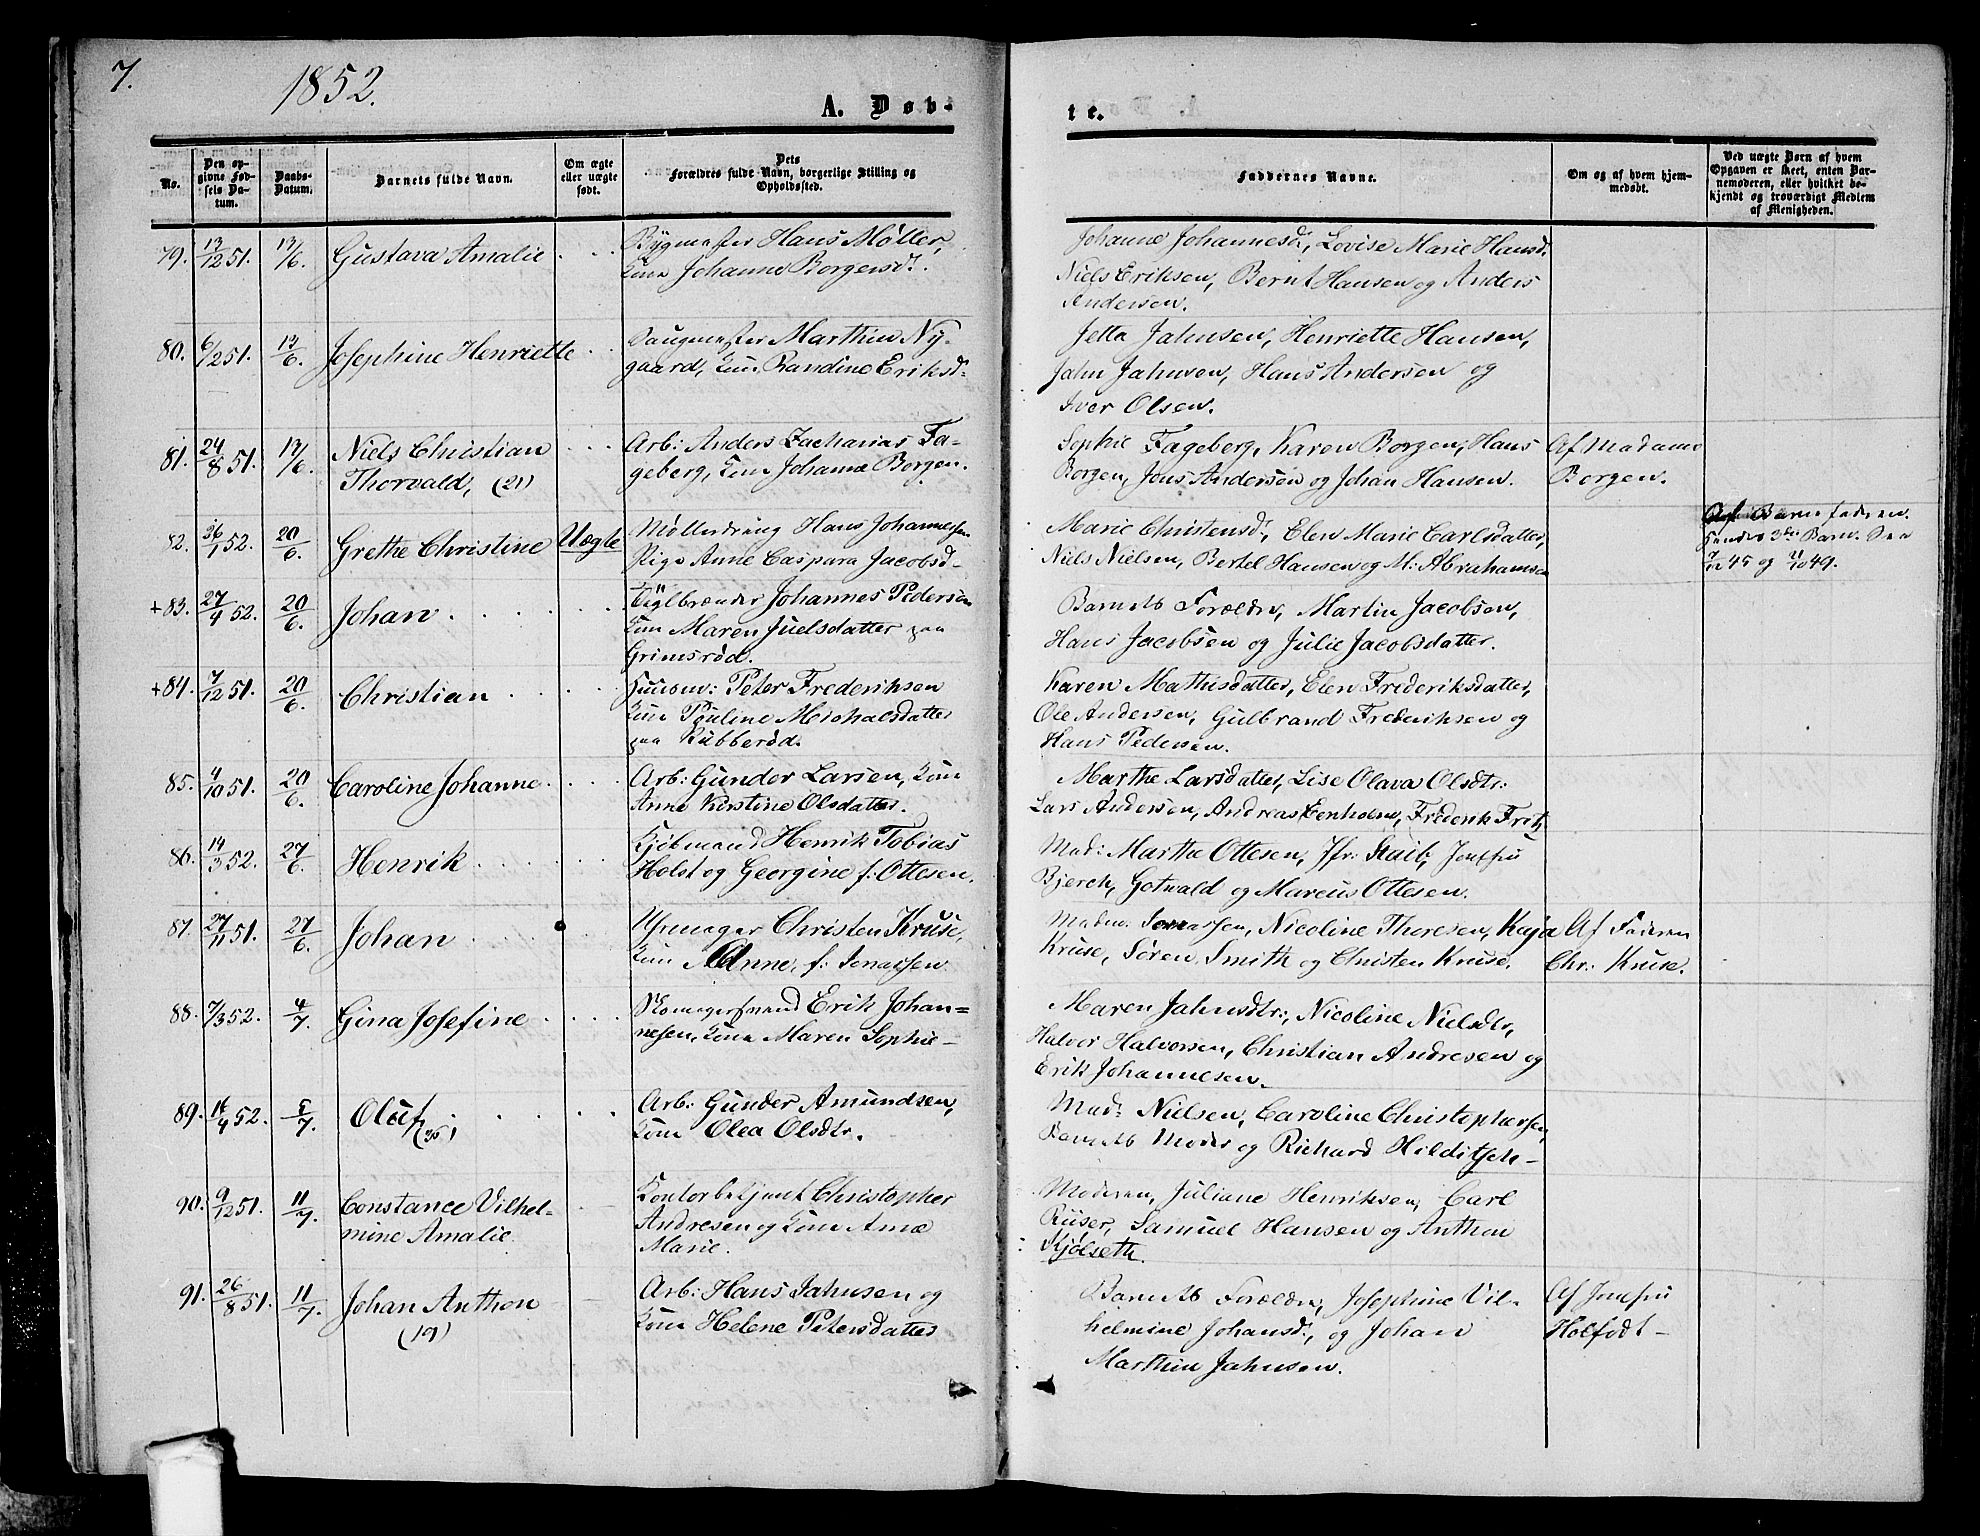 7.
1852.
A. Døb-
te.
No.
Den op-
givne Fød-
sels Da-
tum.
Daabs-
Datum.
Barnets fulde Navn.
Om ægte
eller uægte
født.
Dets
Forældres fulde Navn, borgerlige Stilling og
Opholdssted.
Faddernes Navne.
Om og af hvem hjem-
medøbt.
Ved uægte Børn af hvem
Opgaven er skeet, enten Bar-
nemoderen, eller hvilket be-
kjendt og troværdigt Medlem
af Menigheden.
79. 13/12 51. 13/6. Gustava Amalie
Bygmester Hans Møller,
Kone Johanne Borgersd.
Johanne Johannesd., Lovise Marie Hansd.
Niels Eriksen, Bernt Hansen og Anders
Andersen.
80. 6/2 51. 13/6. Josephine Henriette
Saugmester Marthin Ny-
gaard, Kone Randine Eriksd-
Jetta Jahnsen, Henriette Hansen,
Jahn Jahnsen, Hans Andersen og
Iver Olsen.
81. 24/8 51. 13/6. Niels Christian
Thorvald, (21)
Arb: Anders Zacharias Fa-
geberg, Kone Johanne Borgen.
Sophie Fageberg, Karen Borgen, Hans
Borgen, Jens Andersen og Johan Hansen.
Af Madame
Borgen.
82. 26/1 52. 20/6. Grethe Christine Uægte
Møllerdreng Hans Johannessen
Pige Anne Caspara Jacobsd-
Marie Christensd., Elen Marie Carlsdatter,
Niels Nielsen, Bertel Hansen og M: Abrahamsen
Barnefaderen.
Hendes 3die Barn. See
7/12 45 og 11/10 49.
+83. 27/4 52. 20/6. Johan
Teglbrænder Johannes Pedersen
Kone Maren Juelsdatter paa
Grimsrød.
Barnets Forældre, Martin Jacobsen,
Hans Jacobsen og Julie Jacobsdatter.
+84. 7/12 51. 20/6. Christian
Huusm: Peter Frederiksen
Kone Pouline Michalsdatter
paa Rubberød.
Karen Mathisdatter, Elen Frederiksdatter,
Ole Andersen, Gulbrand Frederiksen og
Hans Pedersen.
85. 4/10 51. 20/6. Caroline Johanne
Arb: Gunder Larsen, Kone
Anne Kirstine Olsdatter.
Marthe Larsdatter, Lise Olava Olsdtr:
Lars Andersen, Andreas Eenholm, Frederik Fritz
86. 14/3 52. 27/6. Henrik
Kjøbmand Henrik Tobias
Holst og Georgine f: Ottesen.
Mad: Marthe Ottesen, Jfr: Staib, Jomfru
Bjerch, Gotwald og Marcus Ottesen.
87. 27/11 51. 27/6. Johan
Uhrmager Christen Kruse,
Kone Anne, f: Jonassen
Madm. Jonassen, Nicoline Thoresen, Kaja
Kruse, Søren Smith og Christen Kruse.
Af Faderen
Chr: Kruse.
88. 7/3 52. 4/7. Gina Josefine
Skomagersvend Erik Johan-
nesen, Kone Maren Sophie-
Maren Jahnsdtr:, Nicoline Nielsdtr,
Halvor Halvorsen, Christian Andresen og
Erik Johannesen.
89. 16/4 52. 5/7. Oluf (35)
Arb: Gunder Amundsen,
Kone Olea Olsdtr.
Mad: Nielsen, Caroline Christophersen,
Barnets Moder og Richard Hilditsch-
90. 9/12 51. 11/7. Constance Vilhel-
mine Amalie.
Kontorbetjent Christopher
Andresen og Kone Anne
Marie.
Moderen, Juliane Henriksen, Carl
Riiser, Samuel Hansen og Anthon
Kjølseth.
91. 26/8 51. 11/7. Johan Anthon
(19)
Arb: Hans Jahnsen og
Kone Helene Petersdatter
Barnets Forældre, Josephine Vil-
helmine Johansd., og Johan
Marthin Jahnsen.
Af Jomfru
Holfodt-